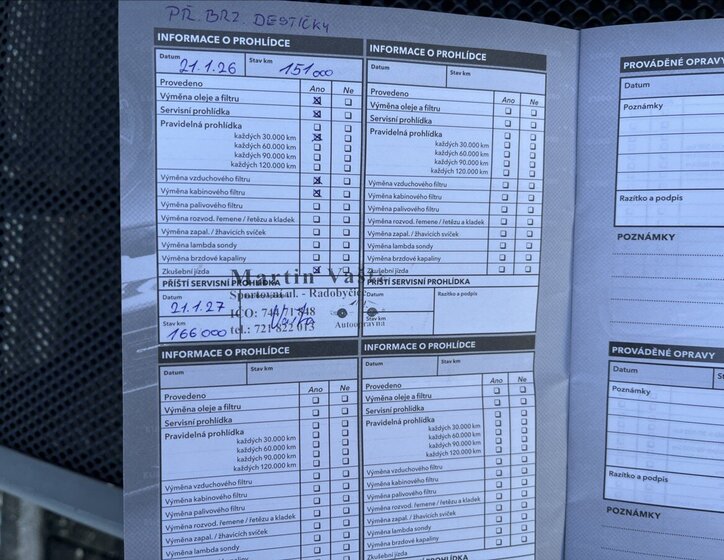 PŘ. BRZ. DESTIČKY
INFORMACE O PROHLÍDCE
Datum 21.1.26 Stav km 151000
Provedeno Ano Ne
Výměna oleje a filtru
Servisní prohlídka
Pravidelná prohlídka
každých 30.000 km
každých 60.000 km
každých 90.000 km
každých 120.000 km
Výměna vzduchového filtru
Výměna kabinového filtru
Výměna palivového filtru
Výměna rozvod. řemene / řetězu a kladek
Výměna zapal. / žhavicích svíček
Výměna lambda sondy
Výměna brzdové kapaliny
Zkušební jízda
PŘÍŠTÍ SERVISNÍ PROHLÍDKA
Datum 21.1.27
Stav km 166000
Martin
Sportovní ul. - Radobyčice
IČO:
tel.: 721 822 013
Autoopravna
INFORMACE O PROHLÍDCE
Datum Stav km
Provedeno Ano Ne
Výměna oleje a filtru
Servisní prohlídka
Pravidelná prohlídka
každých 30.000 km
každých 60.000 km
každých 90.000 km
každých 120.000 km
Výměna vzduchového filtru
Výměna kabinového filtru
Výměna palivového filtru
Výměna rozvod. řemene / řetězu a kladek
Výměna zapal. / žhavicích svíček
Výměna lambda sondy
Výměna brzdové kapaliny
Zkušební jízda
PŘÍŠTÍ SERVISNÍ PROHLÍDKA
Datum Razítko a podpis
Stav km
INFORMACE O PROHLÍDCE
Datum Stav km
Provedeno Ano Ne
Výměna oleje a filtru
Servisní prohlídka
Pravidelná prohlídka
každých 30.000 km
každých 60.000 km
každých 90.000 km
každých 120.000 km
Výměna vzduchového filtru
Výměna kabinového filtru
Výměna palivového filtru
Výměna rozvod. řemene / řetězu a kladek
Výměna zapal. / žhavicích svíček
Výměna lambda sondy
Výměna brzdové kapaliny
INFORMACE O PROHLÍDCE
Datum Stav km
Provedeno Ano Ne
Výměna oleje a filtru
Servisní prohlídka
Pravidelná prohlídka
každých 30.000 km
každých 60.000 km
každých 90.000 km
každých 120.000 km
Výměna vzduchového filtru
Výměna kabinového filtru
Výměna palivového filtru
Výměna rozvod. řemene / řetězu a kladek
Výměna zapal. / žhavicích svíček
Výměna lambda sondy
Výměna brzdové kapaliny
Zkušební jízda
PROVÁDĚNÉ OPRAVY
Datum
Poznámky
Razítko a podpis
POZNÁMKY
PROVÁDĚNÉ OPRAVY
Datum
Poznámky
Razítko a podpis
POZNÁMKY